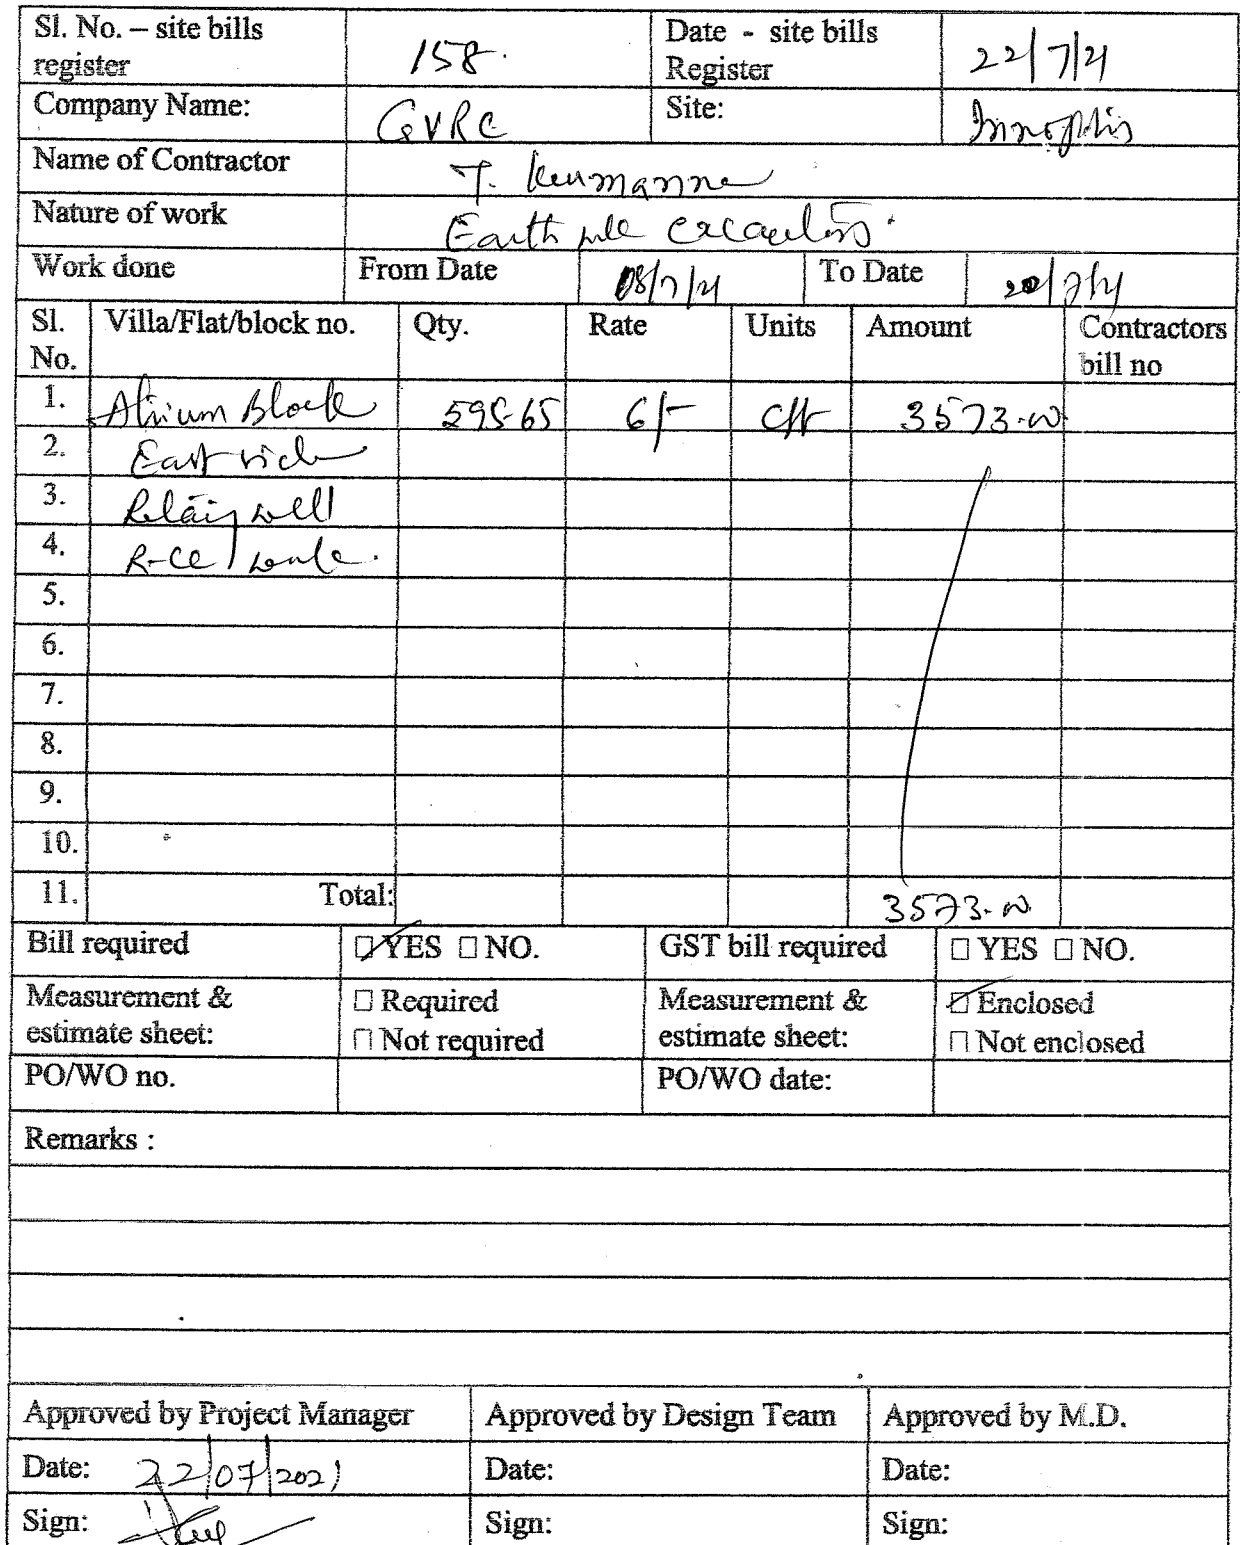 Sl. No. – site bills register 158. Date - site bills Register 22/7/21
Company Name: GVRC Site: Innoplis
Name of Contractor T. Kurmanna
Nature of work Earth
Work done From Date 08/7/21 To Date 20/7/21
Sl. No. Villa/Flat/block no. Qty. Rate Units Amount Contractors bill no
1. Atrium Block 595.65 6/- cft 3573.00
2. East side
3.
4. R-CC
5.
6.
7.
8.
9.
10.
11. Total: 3573.00
Bill required ☑ YES □ NO. GST bill required □ YES □ NO.
Measurement & estimate sheet: □ Required □ Not required Measurement & estimate sheet: ☑ Enclosed □ Not enclosed
PO/WO no. PO/WO date:
Remarks :
Approved by Project Manager Approved by Design Team Approved by M.D.
Date: 22/07/2021 Date: Date:
Sign: Sign: Sign: